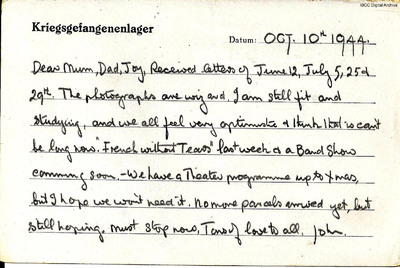 IBCC Digital Archive
Kriegsgefangenenlager
Datum: OCT. 10th 1944.
Dear Mum, Dad, Joy, Received letters of June 12, July 5, 25 &
29th. The photographs are wizard. I am still fit and
studying, and we all feel very optimistic & think that is can't
be long now. "French without Tears" last week & a Band Show
comming soon. - We have a Theater programme up to Xmas,
but I hope we won't need it. No more parcels arrived yet, but
still hoping. Must stop now, Tons of love to all. John.